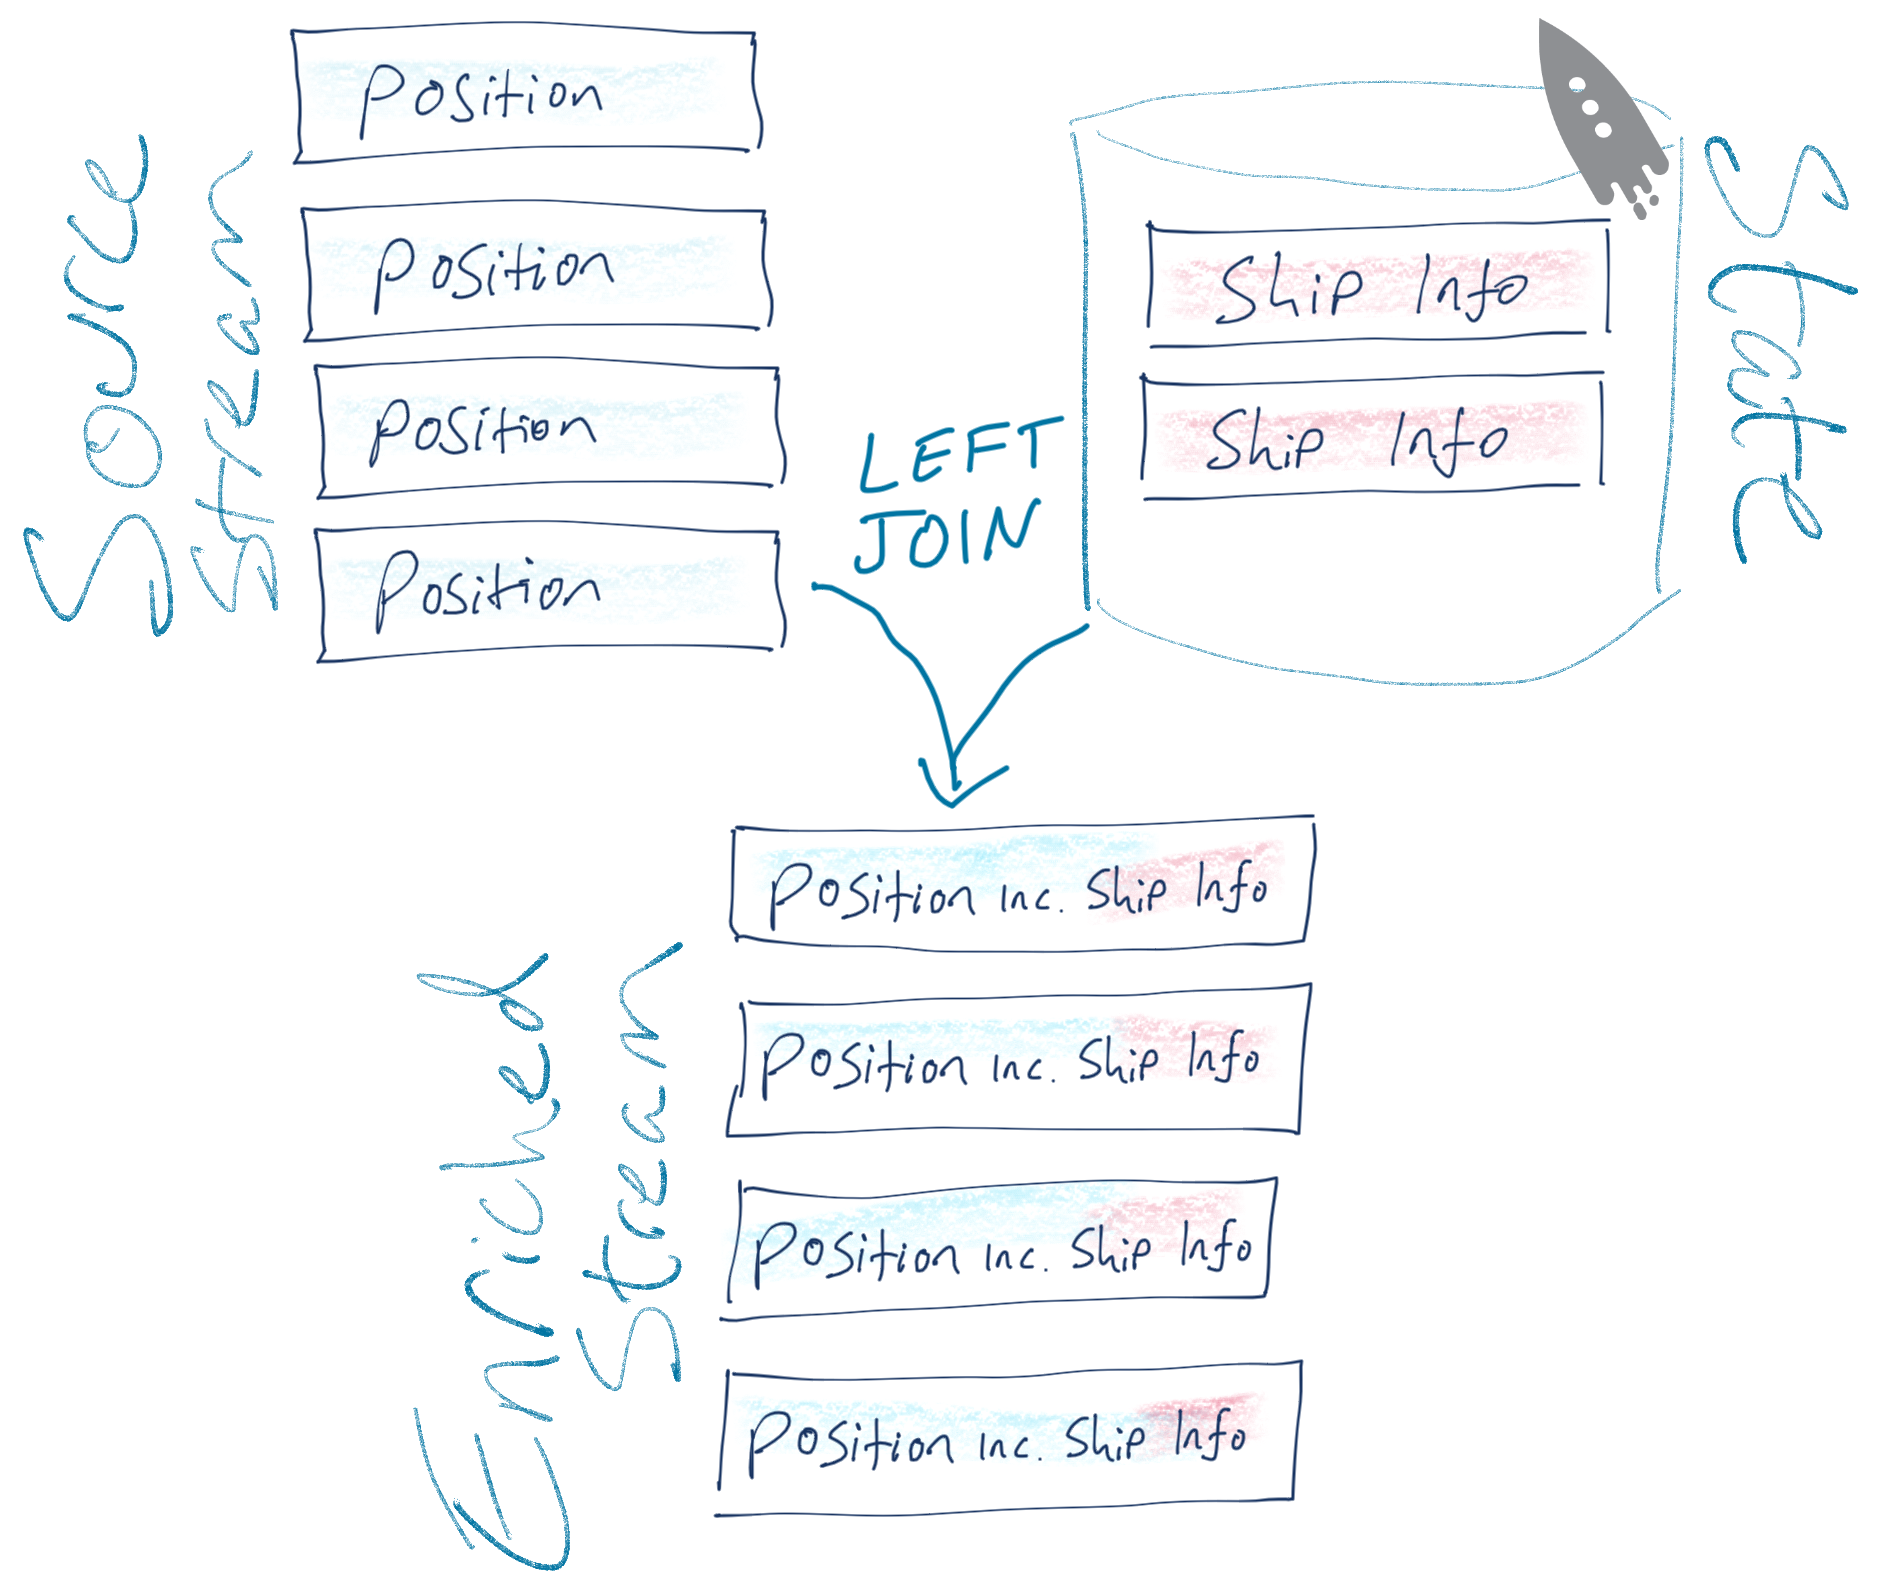 Source
Stream
Position
Position
Position
Position
LEFT
JOIN
Ship Info
Ship Info
State
Enriched
Stream
Position Inc. Ship Info
Position Inc. Ship Info
Position Inc. Ship Info
Position Inc. Ship Info